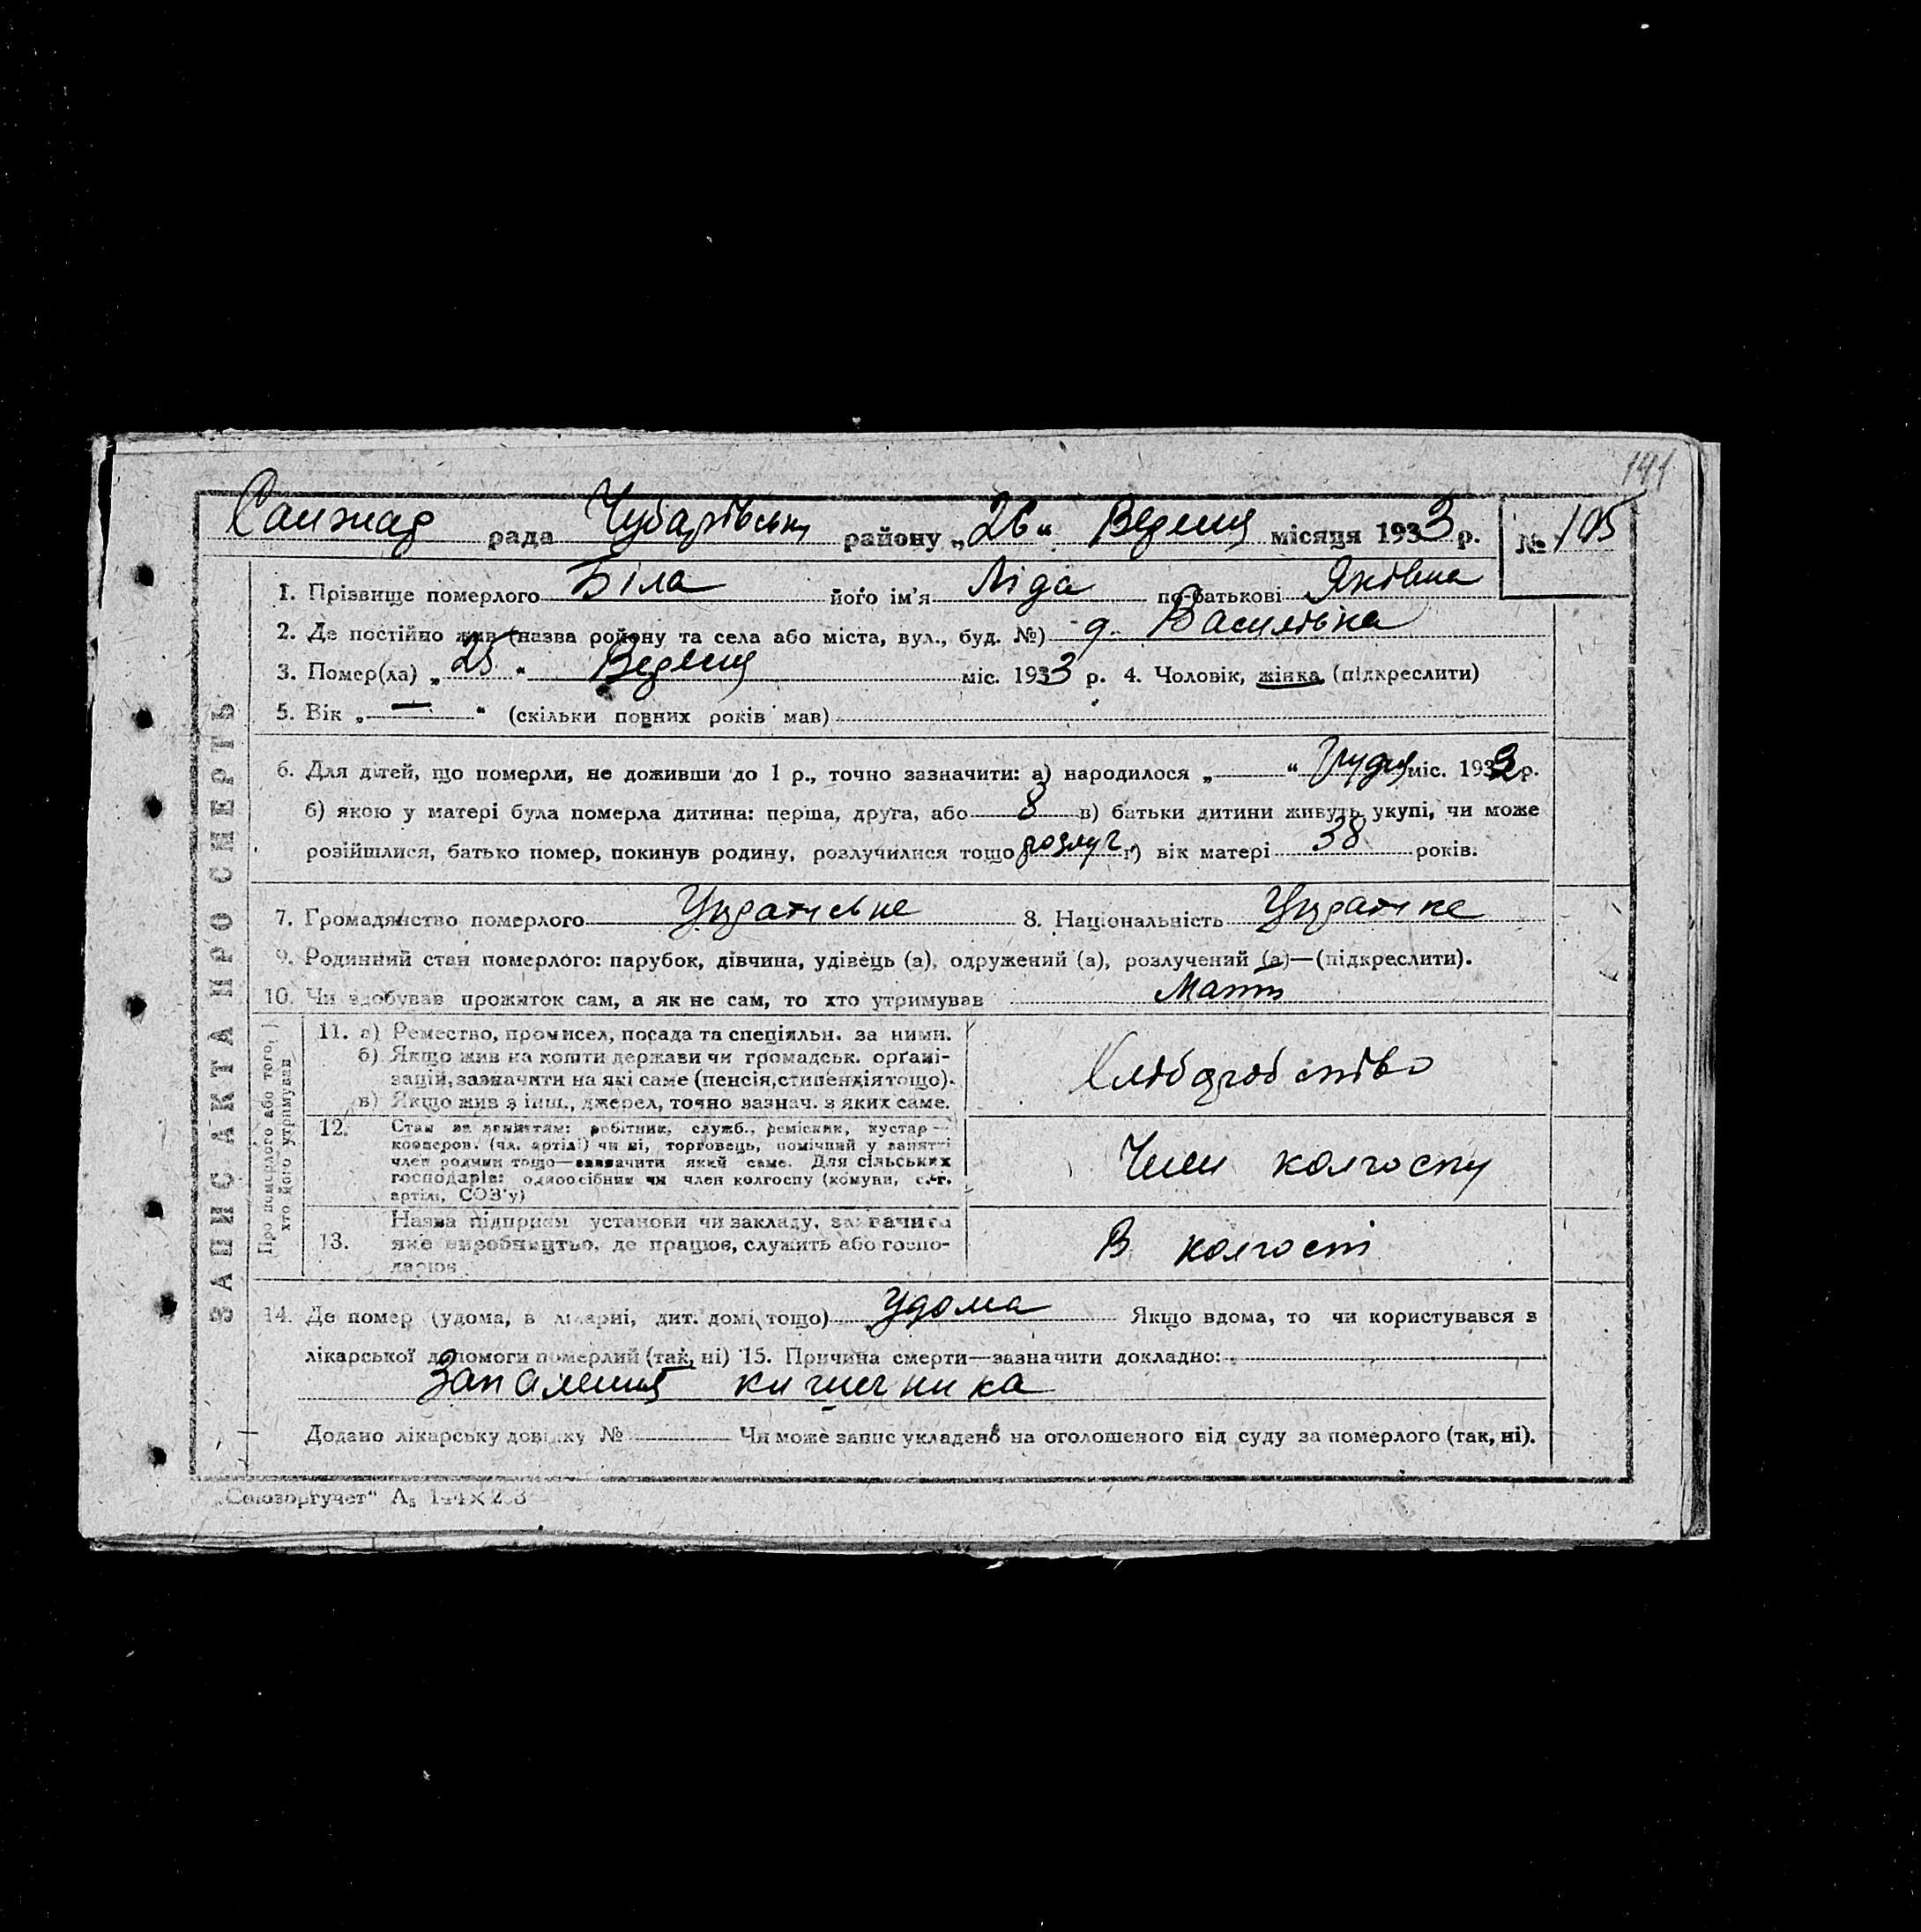 141
рада Чубарівськ району „26“ Вересня місяця 1933 р. № 105
ЗАПИС АКТА ПРО СМЕРТЬ
1. Прізвище померлого Біла його ім'я Ліда по-батькові Яківна
2. Де постійно жив (назва району та села або міста, вул., буд. №) Василівка
3. Помер(ла) „25“ Вересня міс. 1933 р. 4. Чоловік, жінка (підкреслити)
5. Вік „—“ (скільки повних років мав)
6. Для дітей, що померли, не доживши до 1 р., точно зазначити: а) народилося „ “ Грудня міс. 1932 р.
б) якою у матері була померла дитина: перша, друга, або 8 в) батьки дитини живуть укупі, чи може
розійшлися, батько помер, покинув родину, розлучилися тощо розлуч г) вік матері 38 років.
7. Громадянство померлого Українське 8. Національність
9. Родинний стан померлого: парубок, дівчина, удівець (а), одружений (а), розлучений (а)—(підкреслити).
10. Чи здобував прожиток сам, а як не сам, то хто утримував Мати
Про померлого або того, хто його утримував
11. а) Ремество, промисел, посада та спеціяльн. за ними.
б) Якщо жив на кошти держави чи громадськ. орґані-
зацій, зазначити на які саме (пенсія, стипендія тощо).
в) Якщо жив з інш., джерел, точно зазнач. з яких саме.
Хліборобство
12. Стан за заняттям: робітник, служб., реміскик, кустар—
кооперов. (чл. артілі) чи ні, торговець, помічний у занятті
член родини тощо—зазначити який саме. Для сільських
господарів: одноосібник чи член колгоспу (комуни, с.-г.
артілі, СОЗ'у)
Член колгоспу
13. Назва підприєм установи чи закладу, зазначити
яке виробництво, де працює, служить або госпо-
дарює
В колгоспі
14. Де помер (удома, в лікарні, дит. домі, тощо) Удома Якщо вдома, то чи користувався з
лікарської допомоги померлий (так, ні) 15. Причина смерти—зазначити докладно:
Запалення кишечника
Додано лікарську довідку № Чи може запис укладено на оголошеного від суду за померлого (так, ні).
„Союзоргучет“ А₅ 144×203